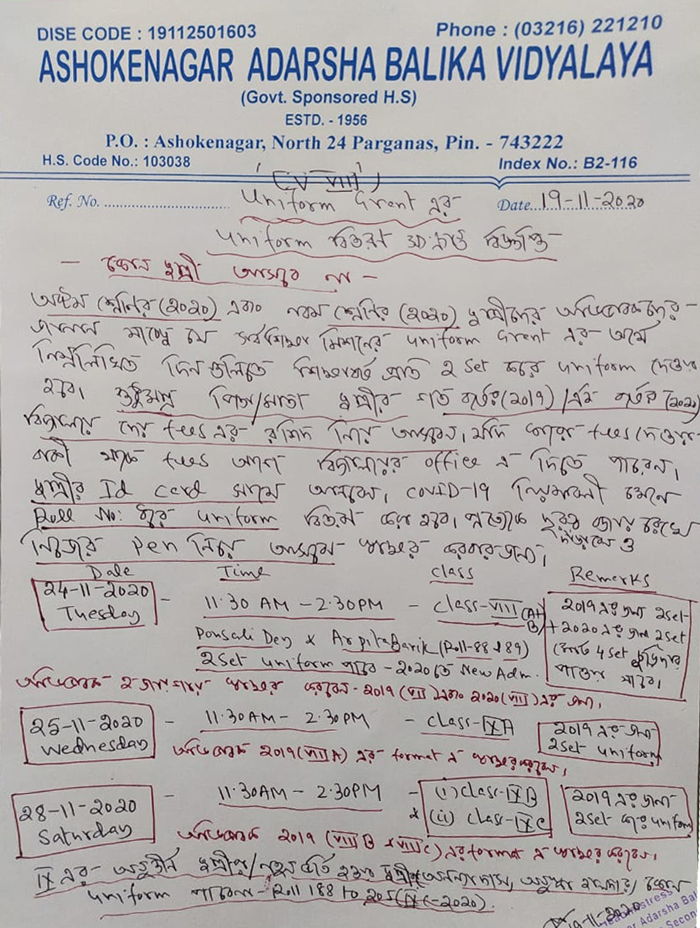 DISE CODE : 19112501603 Phone : (03216) 221210
ASHOKENAGAR ADARSHA BALIKA VIDYALAYA
(Govt. Sponsored H.S)
ESTD. - 1956
P.O. : Ashokenagar, North 24 Parganas, Pin. - 743222
H.S. Code No.: 103038 Index No.: B2-116
(V-VIII)
Ref. No. Uniform Grant এর Date 19-11-2020
Uniform বিতরণ সংক্রান্ত বিজ্ঞপ্তি
- কোন ছাত্রী আসবে না -
অষ্টম শ্রেণির (২০২০) এবং নবম শ্রেণির (২০২০) ছাত্রীদের অভিভাবকদের
জানান যাচ্ছে যে সর্বশিক্ষা মিশনের uniform Grant এর অর্থে
নিম্নলিখিত দিনগুলিতে শিক্ষাবর্ষ প্রতি ২ set করে uniform দেওয়া
হবে। শুধুমাত্র পিতা/মাতা ছাত্রীর গত বর্ষের (২০১৯) / এই বর্ষের (২০২০)
বিদ্যালয়ে দেয় fees এর রশিদ নিয়ে আসবেন। যদি কারও fees দেওয়া
বাকী থাকে fees আগে বিদ্যালয়ের office এ দিতে পারেন।
ছাত্রীর Id card সাথে আনবেন। COVID-19 নিয়মাবলী মেনে
Roll No: ধরে uniform বিতরণ করা হবে। প্রত্যেকে দূরত্ব বজায় রেখে দাঁড়াবেন ও
নিজের Pen নিয়ে আসবেন স্বাক্ষর করবার জন্য।
Date Time Class Remarks
24-11-2020 Tuesday - 11.30 AM - 2.30PM - class-VIII (A+B)
2019 এর জন্য 2set + 2020 এর জন্য 2set মোট 4 set পাওয়া যাবে।
Ponsali Dey & Arpita Barik (Roll-88 & 89)
2set uniform পাবে - 2020 তে New Adm.
অভিভাবক ২ জায়গায় স্বাক্ষর করবেন - 2019 (VII) এবং 2020 (VIII) এর জন্য।
25-11-2020 Wednesday - 11.30AM - 2.30PM - class-IX A
2019 এর জন্য 2set uniform
অভিভাবক 2019 (VIII A) এর format এ স্বাক্ষর করবেন।
28-11-2020 Saturday - 11.30AM - 2.30PM - (i) class-IX B & (ii) class-IX C
2019 এর জন্য 2set করে uniform
অভিভাবক 2019 (VIII B & VIII C) এর format এ স্বাক্ষর করবেন।
IX এর অনুত্তীর্ণ ছাত্রীরা / নতুন ভর্তি হওয়া ছাত্রীরা
uniform পাবেনা - Roll 188 to 205 (IX-2020).
19-11-2020